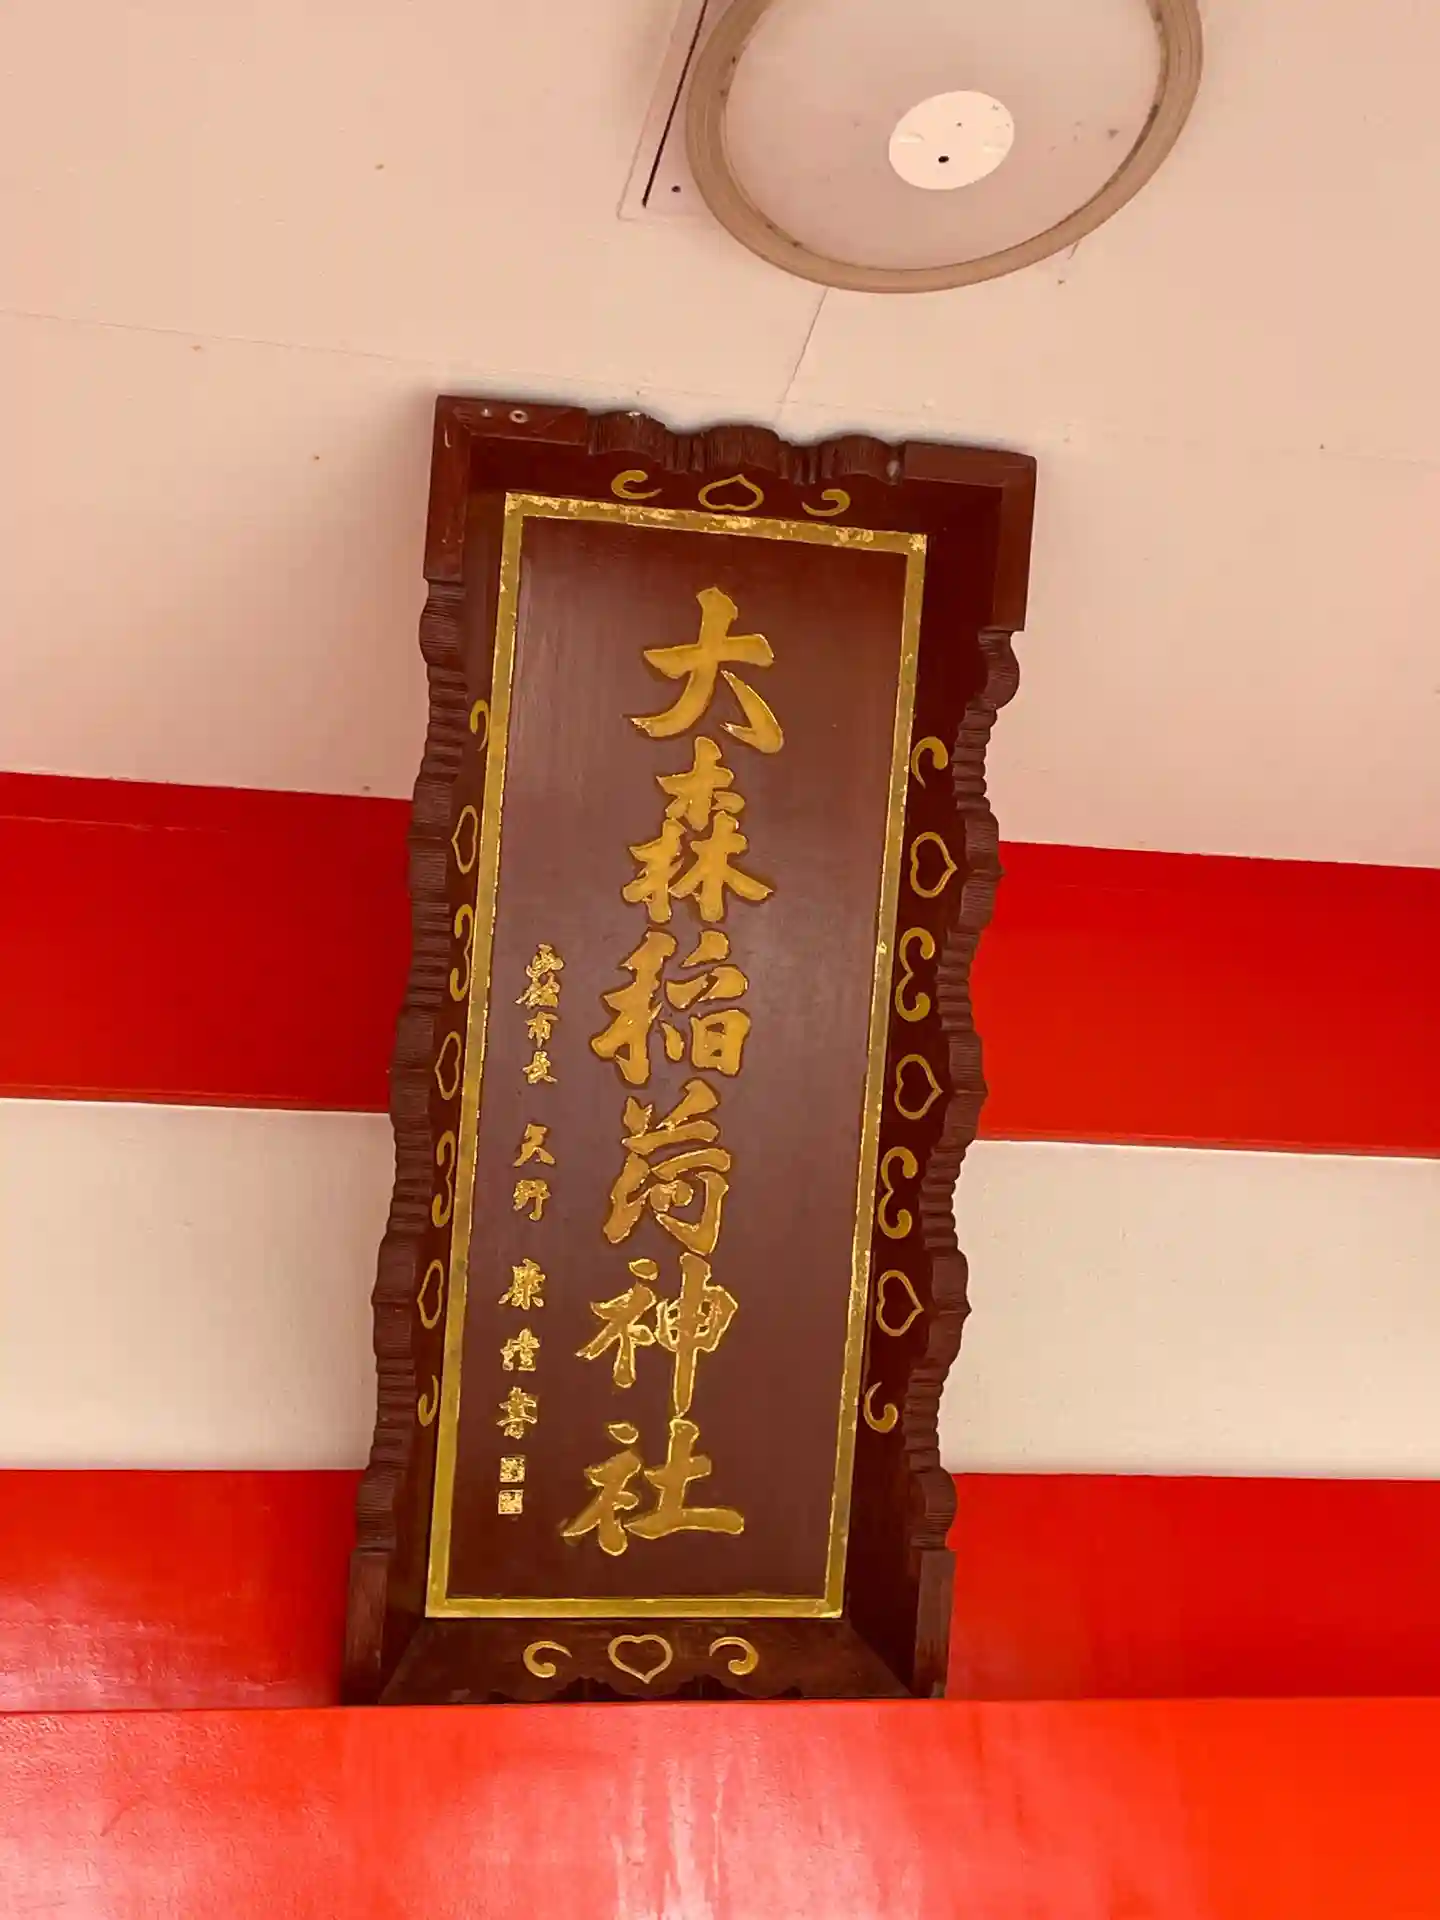 大森稲荷神社
函館市長 矢野 康 書